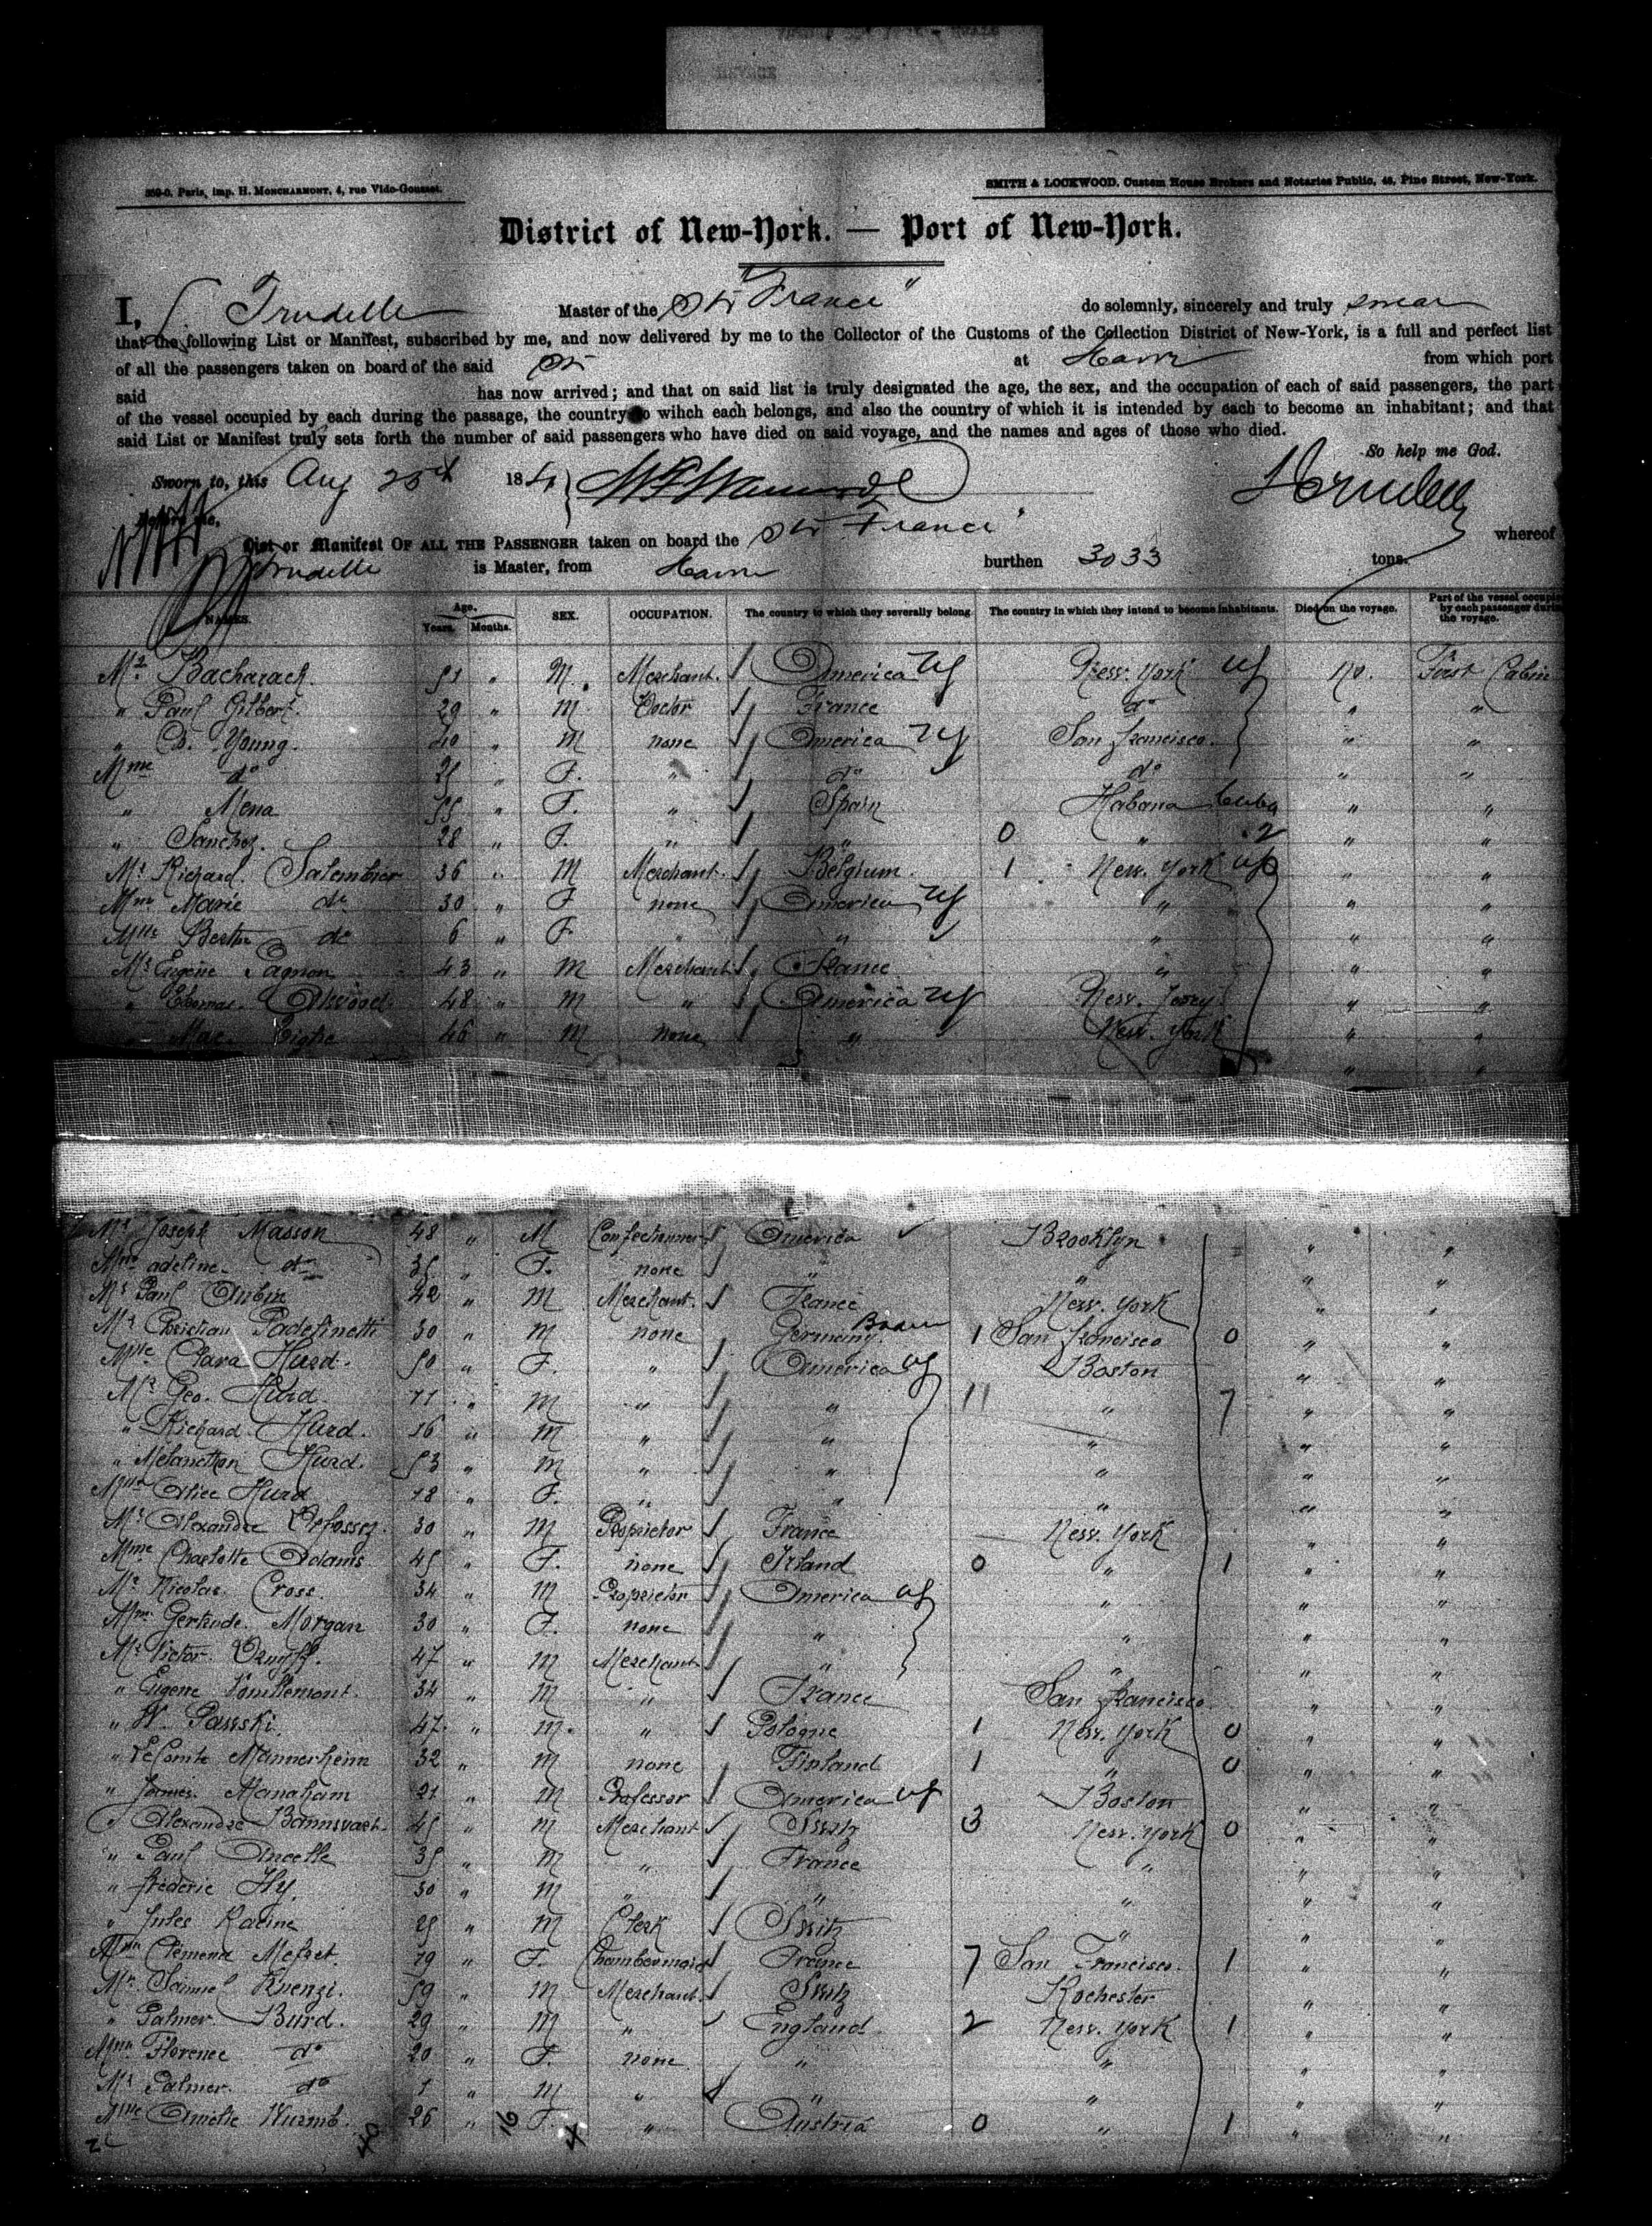 359-6. Paris, imp. H. MONCHARMONT, 4, rue Vide-Gousset.
SMITH & LOCKWOOD, Custom House Brokers and Notaries Public, 45, Pine Street, New-York.
District of New-York. — Port of New-York.
I, Trudelle Master of the Str "France" do solemnly, sincerely and truly swear
that the following List or Manifest, subscribed by me, and now delivered by me to the Collector of the Customs of the Collection District of New-York, is a full and perfect list
of all the passengers taken on board of the said Str at Havre from which port
said has now arrived; and that on said list is truly designated the age, the sex, and the occupation of each of said passengers, the part
of the vessel occupied by each during the passage, the country to wihch each belongs, and also the country of which it is intended by each to become an inhabitant; and that
said List or Manifest truly sets forth the number of said passengers who have died on said voyage, and the names and ages of those who died.
So help me God.
Sworn to, this Aug 25th 18 Trudelle
Before me,
List or Manifest OF ALL THE PASSENGER taken on board the Str France" whereof
Trudelle is Master, from Havre burthen 3033 tons.
NAMES. Age. Years. Months. SEX. OCCUPATION. The country to which they severally belong The country in which they intend to become inhabitants. Died on the voyage. Part of the vessel occupied by each passenger during the voyage.
Mr Bacharach. 51 " M. Merchant. America US New. York US No. First Cabin
" Paul Gilbert. 29 " M Doctor France do " "
" D. Young. 40 " M none America US San francisco. " "
Mme do 25 " F. " do do " "
" Mena 55 " F. " Spain Habana Cuba " "
" Sanchez. 28 " F. " " 0 " 2 " "
Mr Richard. Salembier 36 " M Merchant. Belgium. 1 New. York US " "
Mme Marie do 30 " F none America US " " "
Mlle Berthe do 6 " F " " " " "
Mr Eugène Pagnon 43 " M Merchant France " " "
" Thomas. Atwood 48 " M " America US New. Jersey " "
" Mac. 46 " M none " New. York " "
Mr Joseph Masson 48 " M Confectioner America Brooklyn " "
Mme adeline. do 35 " F. none " " " "
Mr Paul Aubin 42 " M Merchant. France New. York " "
Mr Christian 30 " M none Germany. 1 San francisco 0 " "
Mlle Clara Hurd. 50 " F. " America US Boston " "
Mr Geo. Hurd 11 " M " " 11 " 7 " "
" Richard Hurd. 16 " M " " " " "
" Melancthon Hurd. 53 " M " " " " "
Mlle Alice Hurd 18 " F. " " " " "
Mr Alexandre Defossez. 30 " M Proprietor France New. York " "
Mme Charlotte Adams 45 " F. none Irland 0 " 1 " "
Mr Nicolas Cross. 34 " M Proprietor America US " " "
Mme Gertrude. Morgan 30 " F. none " " " "
Mr Victor. 47 " M Merchant " " " "
" Eugene 34 " M " France San francisco. " "
" W. Pawski. 47 " M. " Pologne 1 New. York 0 " "
" LeComte Mannerheim 32 " M none Finland 1 " 0 " "
" James. Manaham 21 " M Professor America US Boston " "
" Alexandre Bannwart. 45 " M Merchant Switz 3 New. York 0 " "
" Paul Ancelle 35 " M " France " " "
" frederic Hy. 30 " M " " " " "
" Jules Racine 25 " M Clerk Switz " " "
Mme Clémence 29 " F. Chambermaid France 7 San Francisco. 1 " "
Mr. Samuel Kuenzi. 59 " M Merchant. Switz Rochester " "
" Palmer. Burd. 29 " M " England 2 New. York 1 " "
Mme Florence do 20 " F. none " " " "
Mr Palmer. do 1 " M " " " " "
Mlle Amelie Wurmb. 26 " F. " Austria 0 " 1 " "
40 16